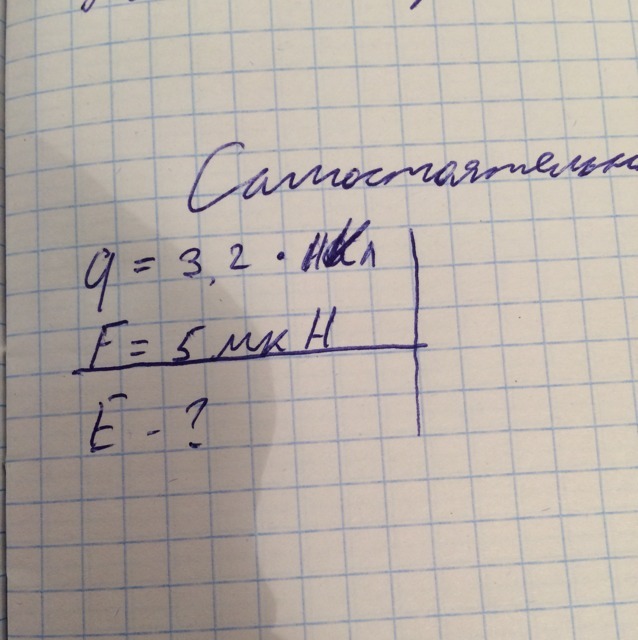 Самостоятельн
q = 3,2 · нКл
F = 5 мкН
E - ?